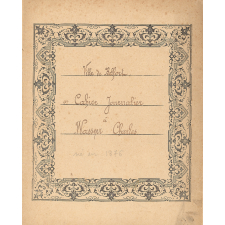 Ville de Belfort
Cahier Journalier
à
Charles